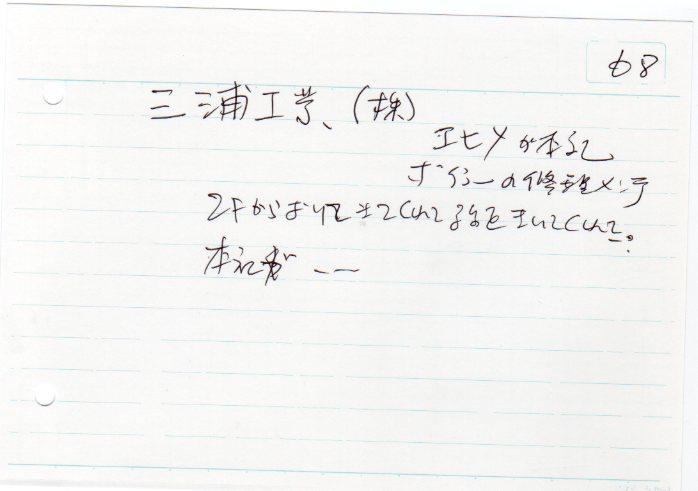 68
三浦工業、(株)
エヒメが本社
ボイラーの修理メンテ
2Fからおりてきてくれて 話をきいてくれて。
本社が ーー